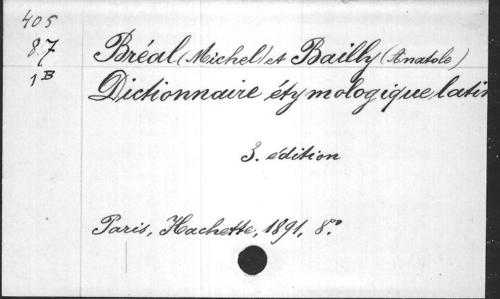 405
87
1B
Bréal (Michel) et Bailly (Anatole)
Dictionnaire étymologique latin
3. édition
Paris, Hachette, 1891, 8.°